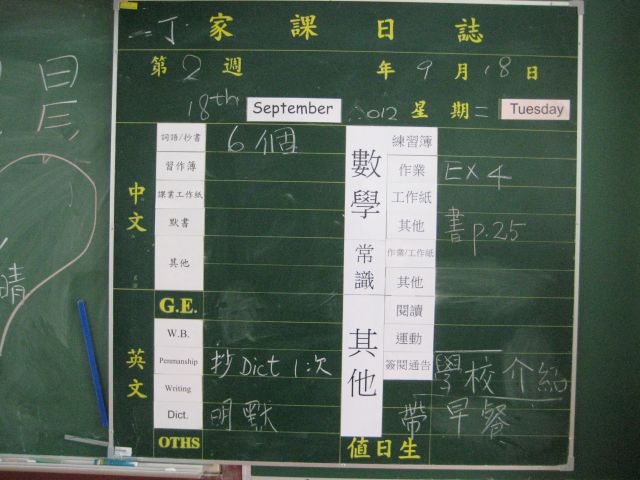 二丁 家課日誌
第2週 年9月18日
18th September 2012 星期二 Tuesday
中文
詞語/抄書 6個
習作簿
課業工作紙
默書
其他
英文
G.E.
W.B.
Penmanship 抄Dict 1次
Writing
Dict. 明默
OTHS
數學
練習簿
作業 EX 4
工作紙
其他 書p.25
常識
作業/工作紙
其他
其他
閱讀
運動
簽閱通告 學校介紹
帶早餐
值日生
晴